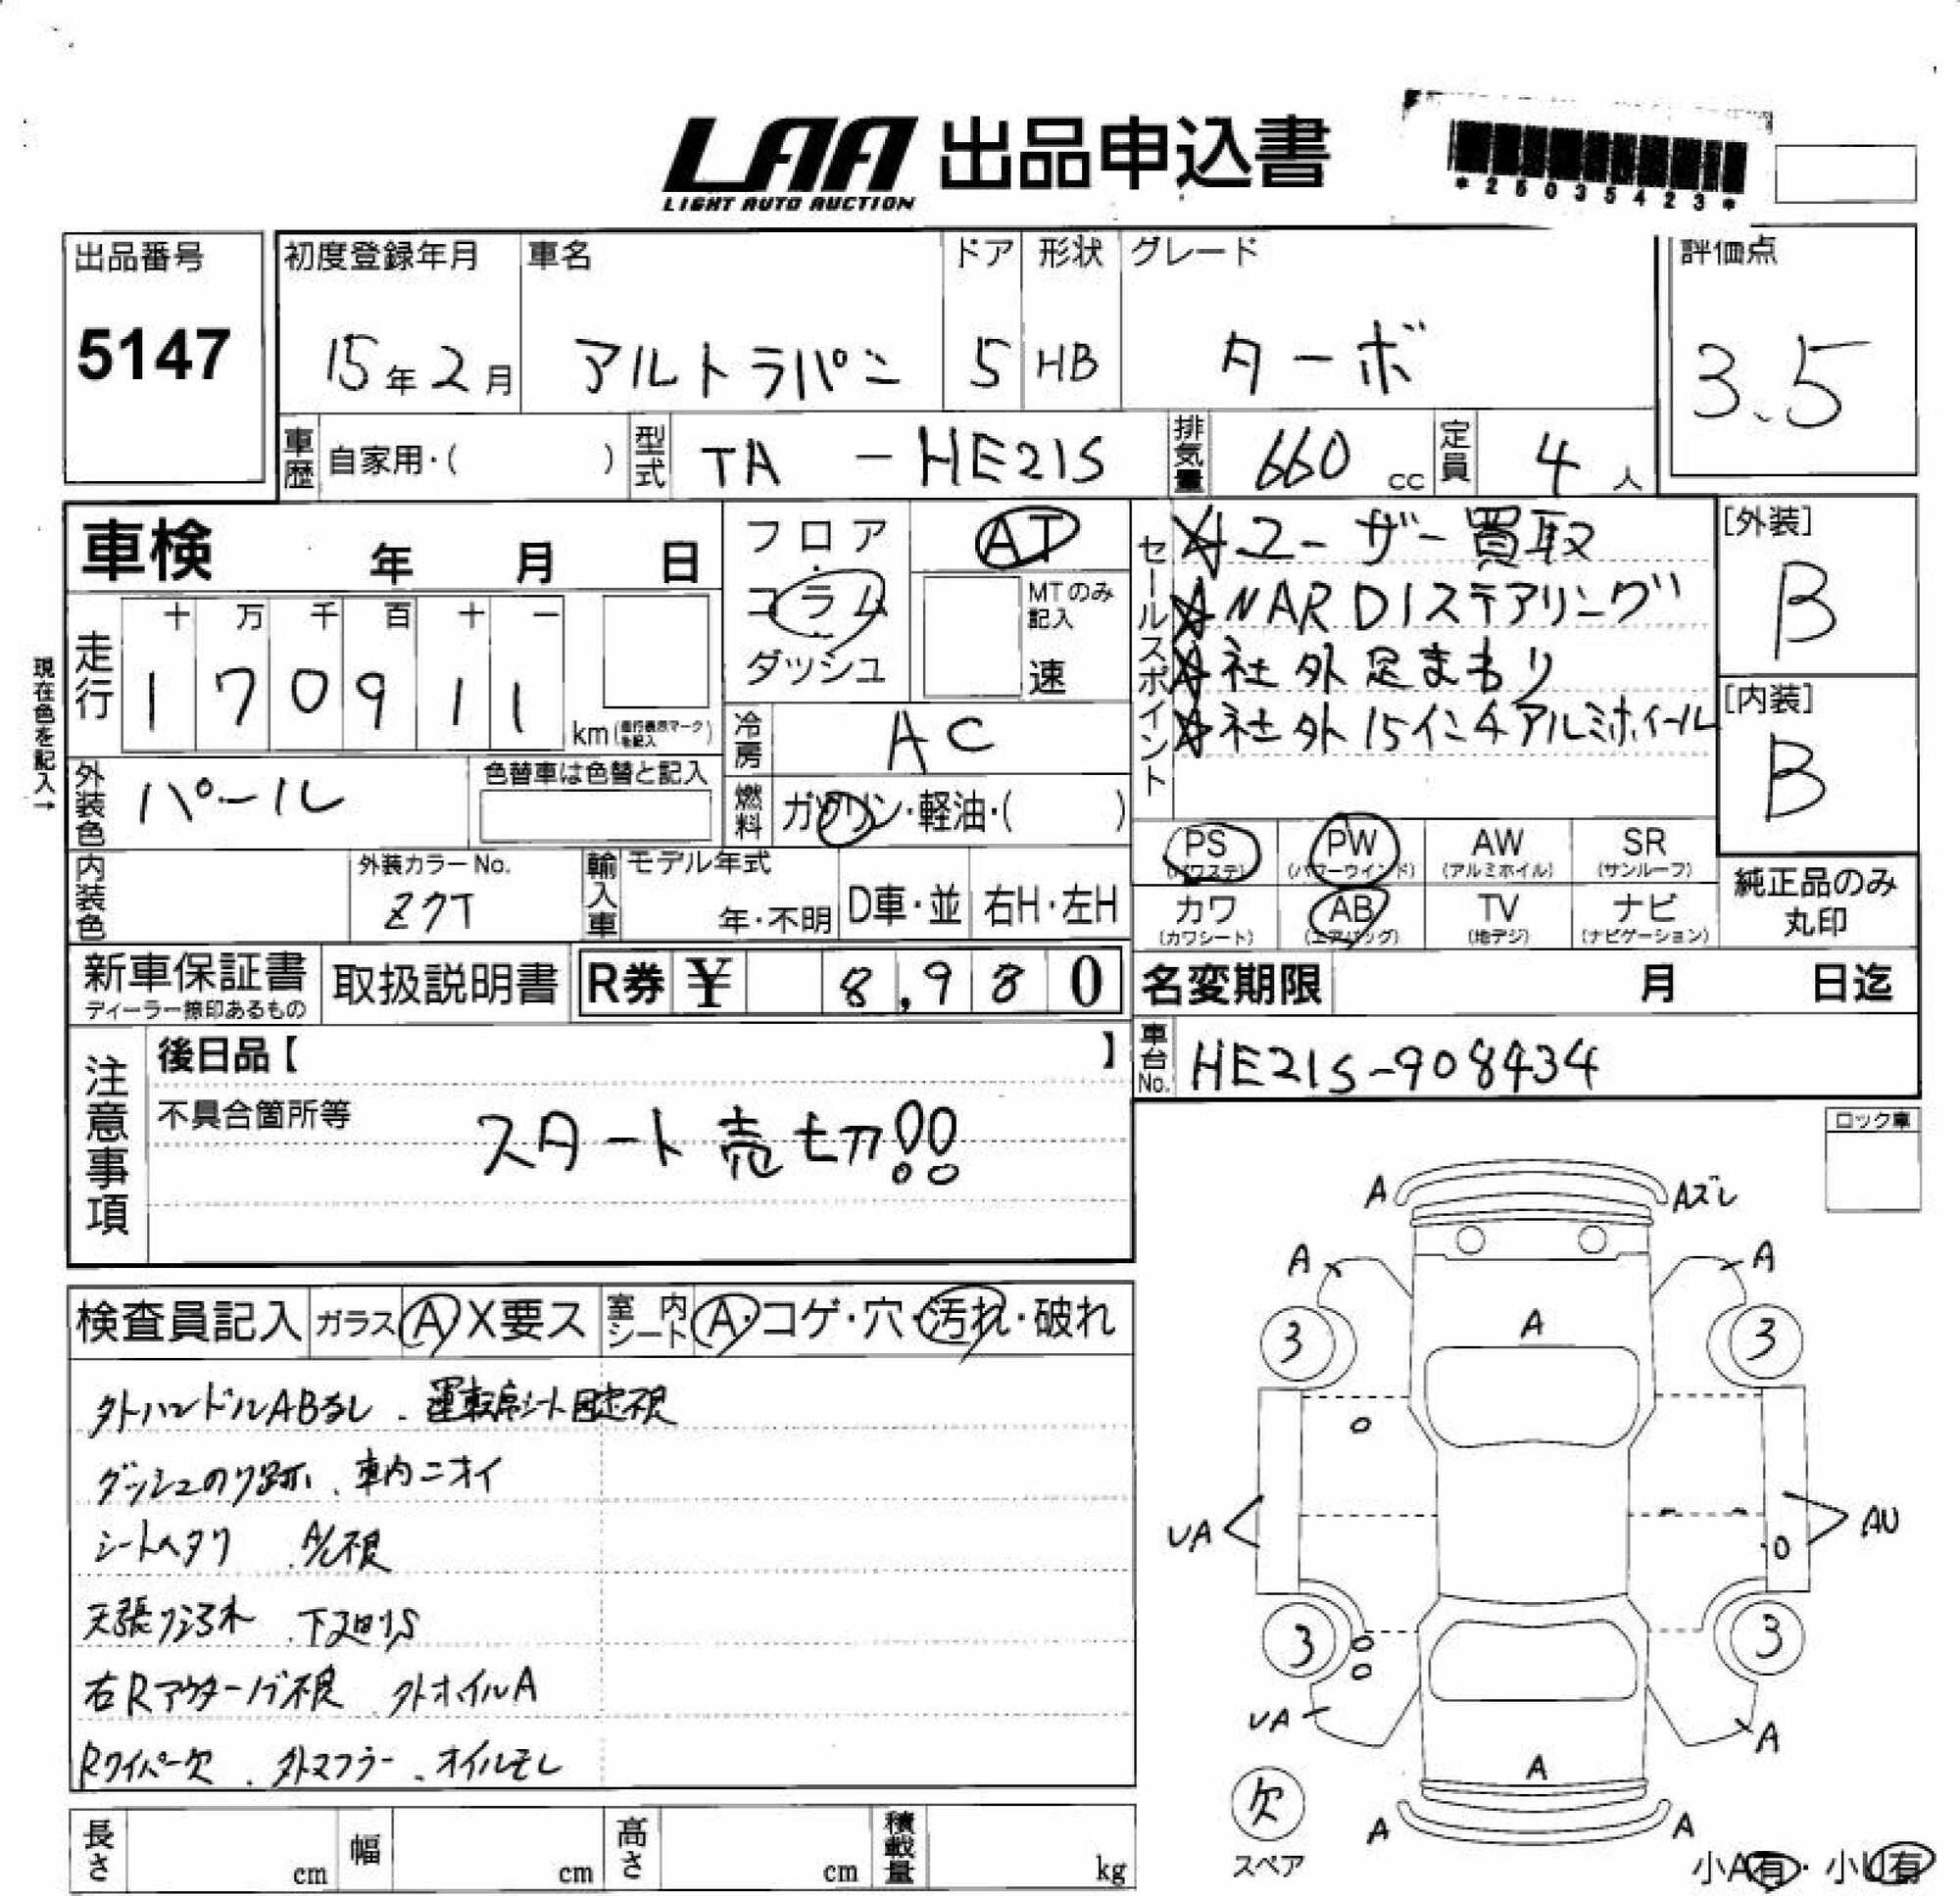 LAA 出品申込書
LIGHT AUTO AUCTION
*26035423*
出品番号
5147
初度登録年月
15年2月
車名
アルトラパン
ドア
5
形状
HB
グレード
ターボ
評価点
3.5
車歴 自家用・( )
型式 TA-HE21S
排気量 660 cc
定員 4人
車検 年 月 日
走行 十 万 千 百 十 一
170911 km
現在色を記入→
フロア
コラム
ダッシュ
AT
MTのみ記入
速
冷房 AC
燃料 ガソリン・軽油・( )
セールスポイント
☆ユーザー買取
☆NARDIステアリング
☆社外足まわり
☆社外15インチアルミホイール
[外装]
B
[内装]
B
外装色 パール
色替車は色替と記入
内装色
外装カラーNo.
Z7T
輸入車 モデル年式
年・不明 D車・並 右H・左H
PS (パワステ)
PW (パワーウインド)
AW (アルミホイル)
SR (サンルーフ)
カワ (カワシート)
AB (エアバッグ)
TV (地デジ)
ナビ (ナビゲーション)
純正品のみ
丸印
新車保証書
取扱説明書
R券 ¥ 8,980
名変期限 月 日迄
車台No. HE21S-908434
注意事項
後日品【 】
不具合箇所等
スタート売切!!
ロック車
検査員記入 ガラス A X要ス 室内シート A・コゲ・穴・汚れ・破れ
外ハンドルABなし、運転席シート固定不良
ダッシュのり跡、車内ニオイ
シートヘタリ A/C不良
天張り汚れ 下廻りS
右Rアウターノブ不良 外ホイルA
Rワイパー欠、外マフラー、オイルモレ
A
Aズレ
A
A
3
A
3
UA
AU
3
3
UA
A
A
欠
スペア
A
A
小A有・小U有
長さ cm
幅 cm
高さ cm
積載量 kg